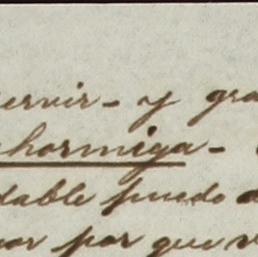 ervir - y gra
hormiga -
dable puedo
por que